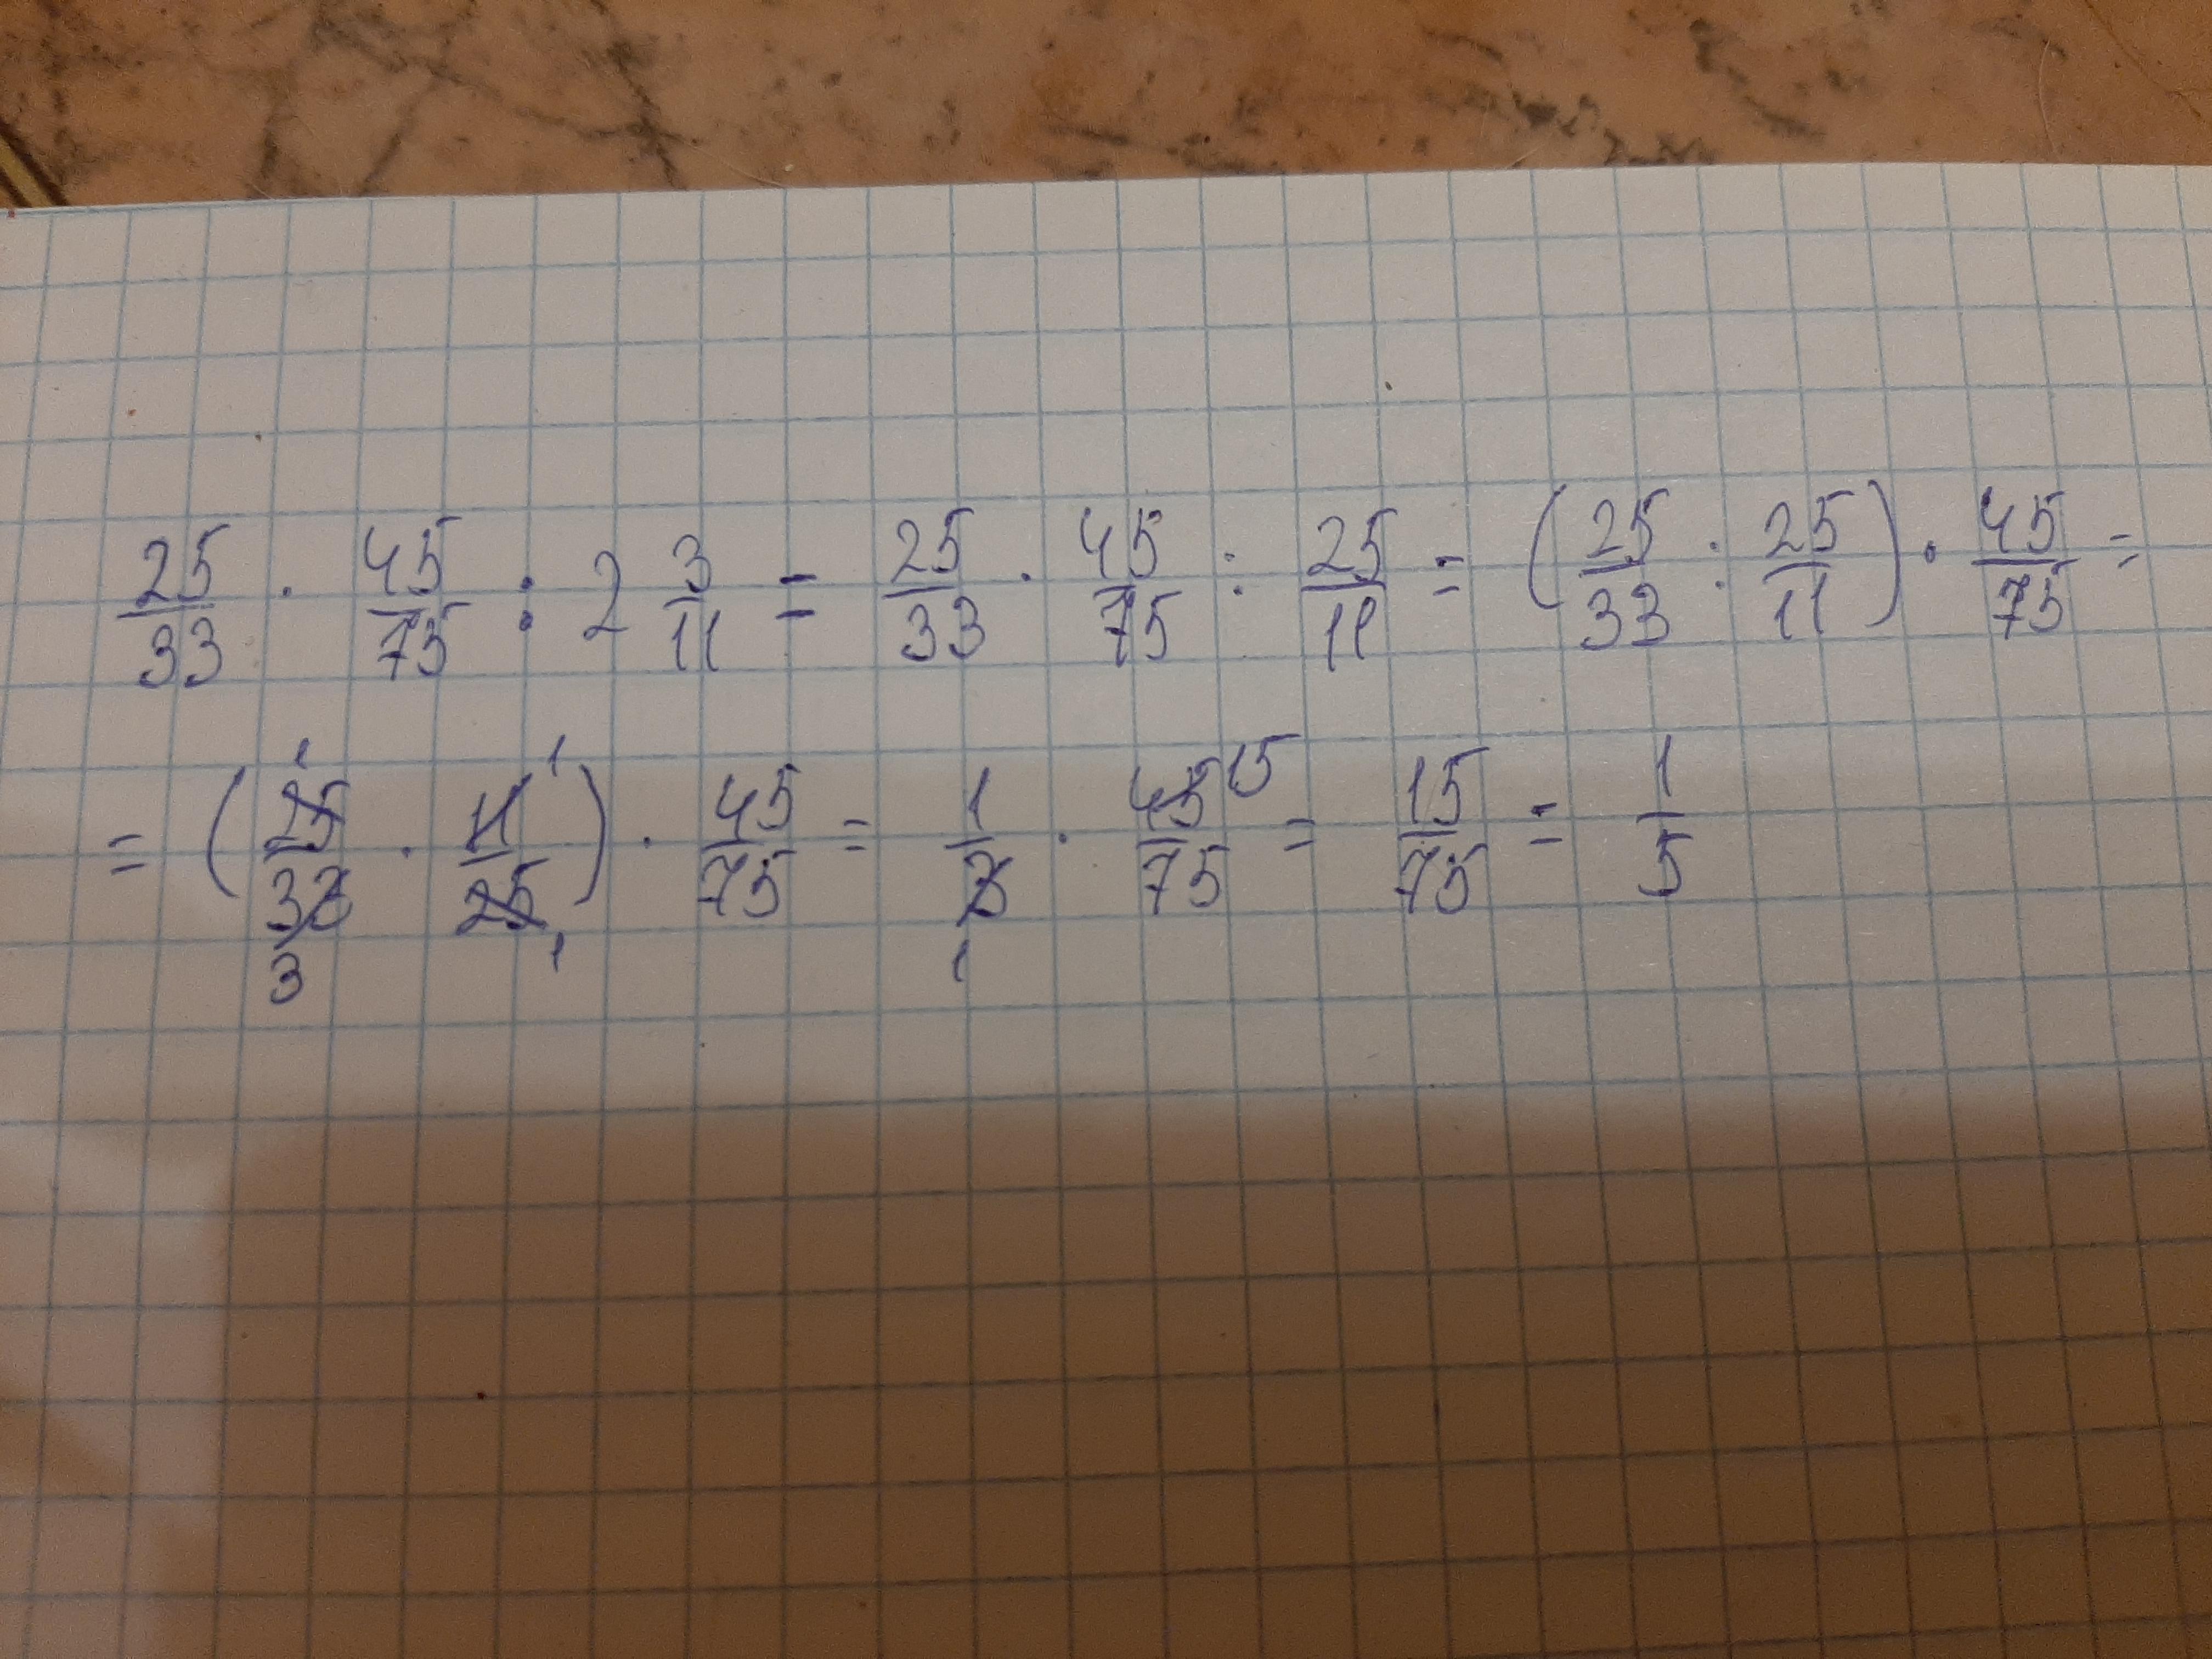 25/33 · 45/75 : 2 3/11 = 25/33 · 45/75 : 25/11 = (25/33 : 25/11) · 45/75 =
= (25/33 · 11/25) · 45/75 = 1/3 · 45/75 = 15/75 = 1/5